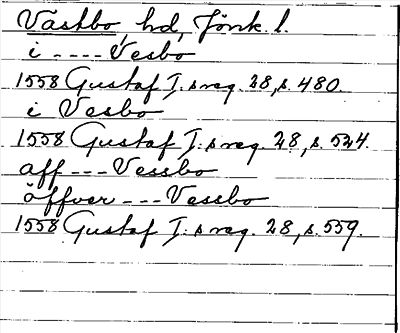 Västbo, hd, Jönk. l.
i ---- Vesbo
1558 Gustaf I:s reg. 28, s. 480.
i Vesbo
1558 Gustaf I:s reg. 28, s. 524.
aff --- Vessbo
öffver --- Vessbo
1558 Gustaf I:s reg. 28, s. 559.